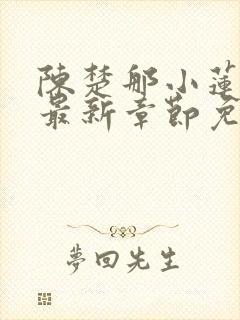 陳楚那小蓮
最新章節免
夢回先生